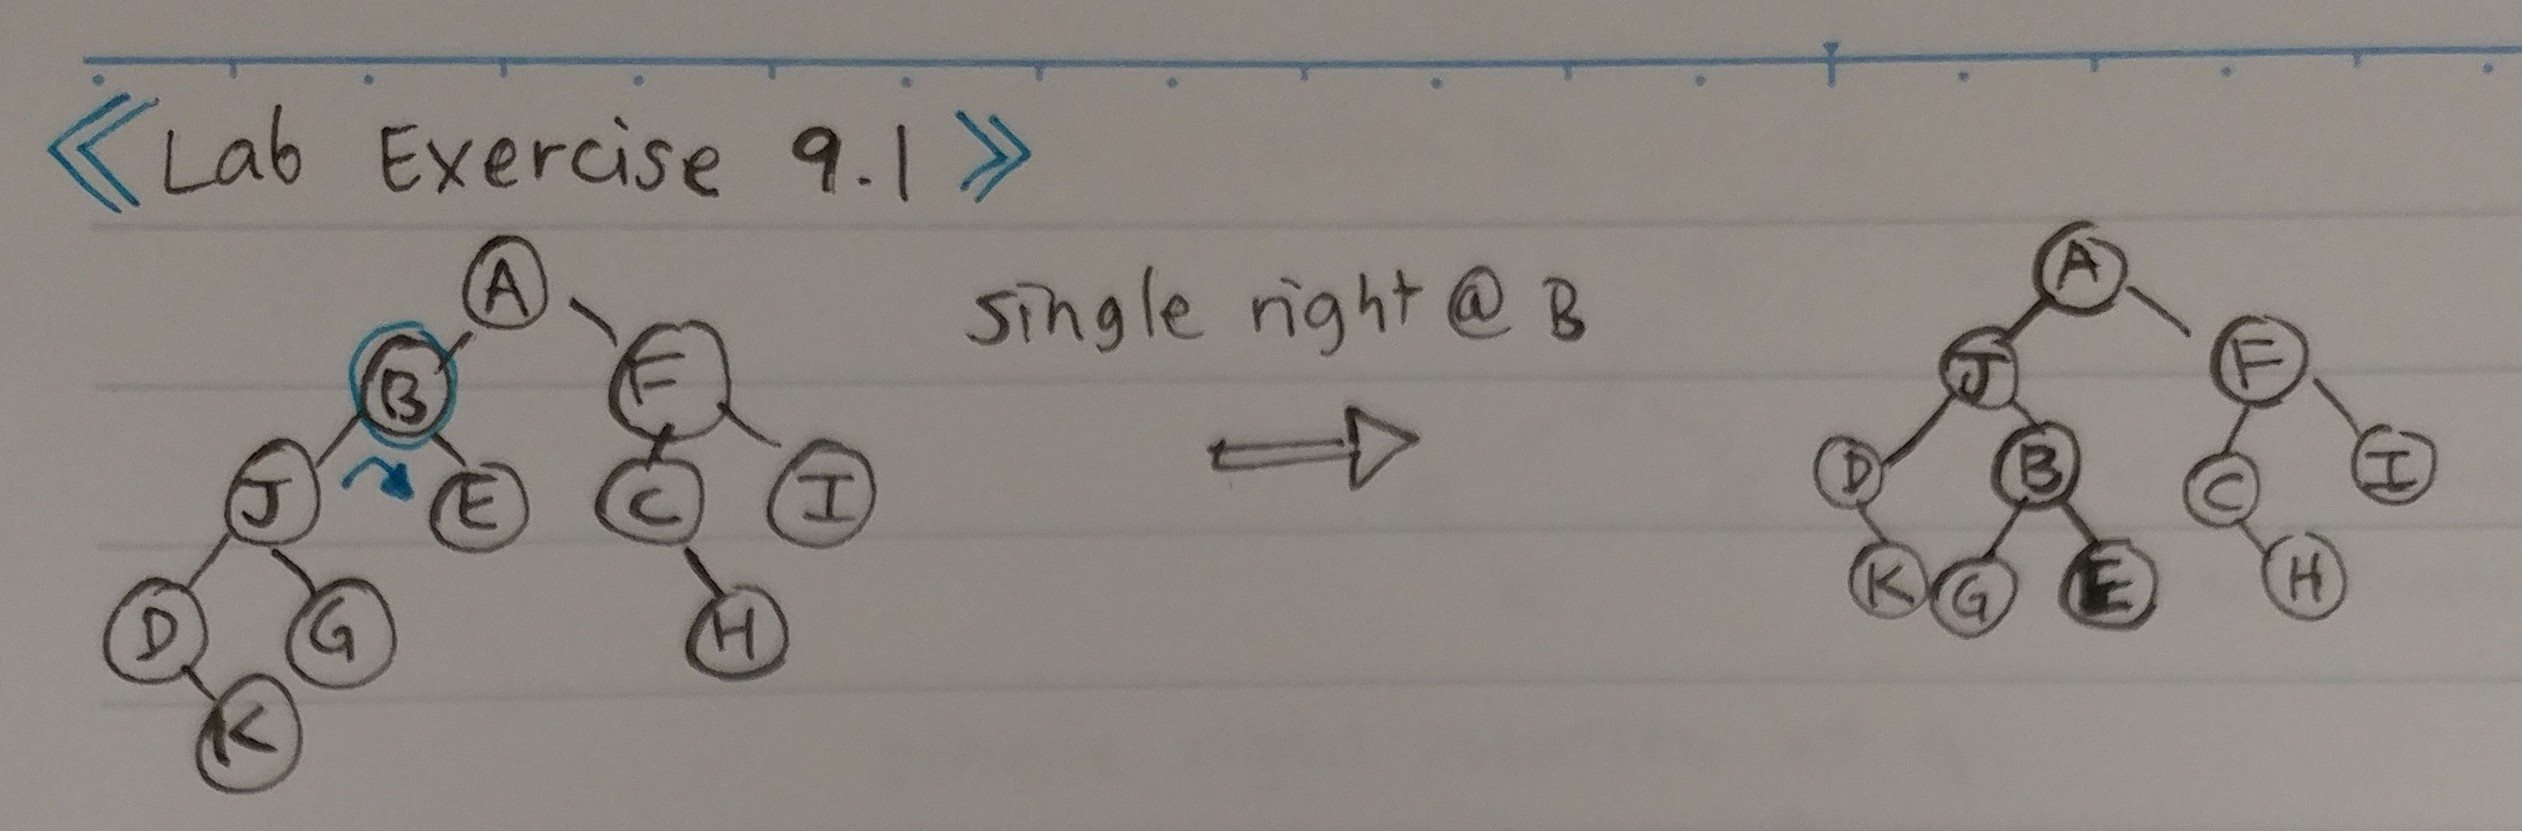 《Lab Exercise 9.1》
A
B F
J E C I
D G H
K
single right @ B
A
J F
D B C I
K G E H